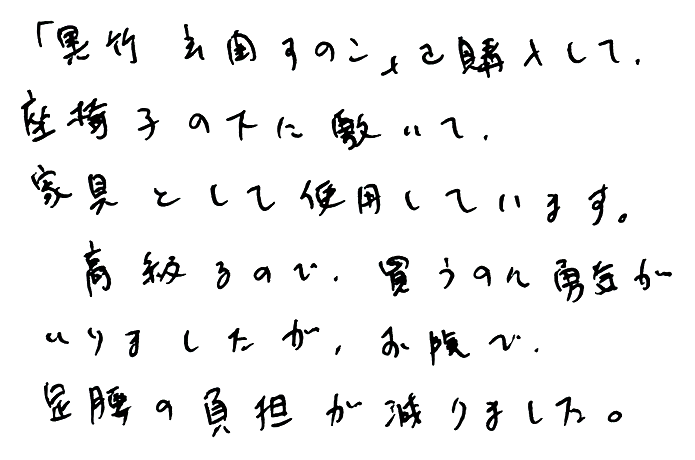 「黒竹 玄関すのこ」を購入して、
座椅子の下に敷いて、
家具として使用しています。
高級なので、買うのに勇気が
いりましたが、お陰で、
足腰の負担が減りました。